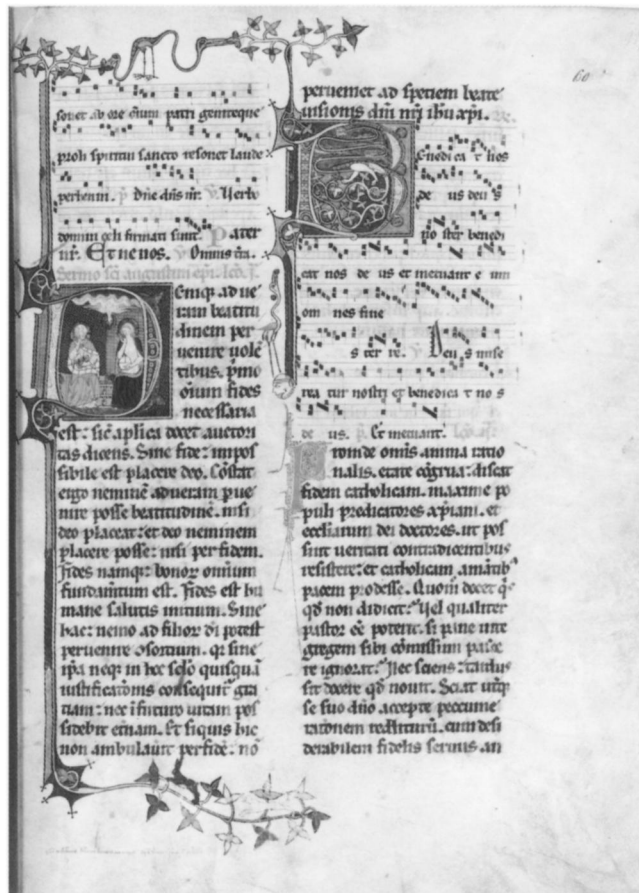 60
sonet ab ore omium patri genitoque
proli spiritui sancto resonet laude
perhenni. p̃ Dñe dñs nr̃. ṽ Uerbo
domini celi firmati sunt. Pater
nr̃. Et ne nos. Omnis tr̃a.
Sermo sc̃i augustini ep̃i. lc̃o. j̃.
Enim̃q; ad ue
ram beatitu
dinem per
uenire uolẽ
tibus. p̃mo
oĩum fides
necessaria
est: sic̃ ap̃lica docet auctori
tas dicens. Sine fide: impos
sibile est placere deo. Cõstat
ergo neminẽ ad ueram p̱ue
nire posse beatitudinẽ. nisi
deo placeat: et deo neminem
placere posse: nisi per fidem.
Fides namq;: bonoꝝ omĩum
fundam̃tum est. Fides est hu
mane salutis initium. Sine
hac: nemo ad filioꝝ di potest
peruenire c̃sortium. q̃ sine
ip̃a neq; in hoc sc̃lo quisquã
iustificatiõis consequit̃ gra
tiam: nec ĩ futuro uitam pos
sidebit et̃nam. Et siquis hic
non ambulaũit per fidẽ. nõ
perueniet ad speciem beate
uisionis dñi nr̃i ihu xp̃i.
Enedica t nos
de us deu s
no ster benedi
cat nos de us et metuant e um
om nes fine
s ter re. ṽ Deu s mise
rea tur nostri et benedica t no s
de us. p̃. Et metuant. lc̃o. ij̃.
roinde omĩs anima ratio
nalis. etate c̃grua: discat
fidem catholicam. maxime po
puli predicatores xp̃iani. et
eccl̃iarum dei doctores. ut pos
sint ueritati contradicentibus
resistere: et catholicam amãtib᷒
pacem prodesse. Quom̃ docet q̃s
qd̃ non didicit: Uel qualiter
pastor eẽ poterit. si pane uite
gregem sibi cõmissum pasce
re ignorat. Nec sciens: tardus
sit docere qd̃ nouit. Sciat utiq;
se suo dño accepte peccunie
rationem redditurũ. cum desi
derabilem fidelis seruus. an